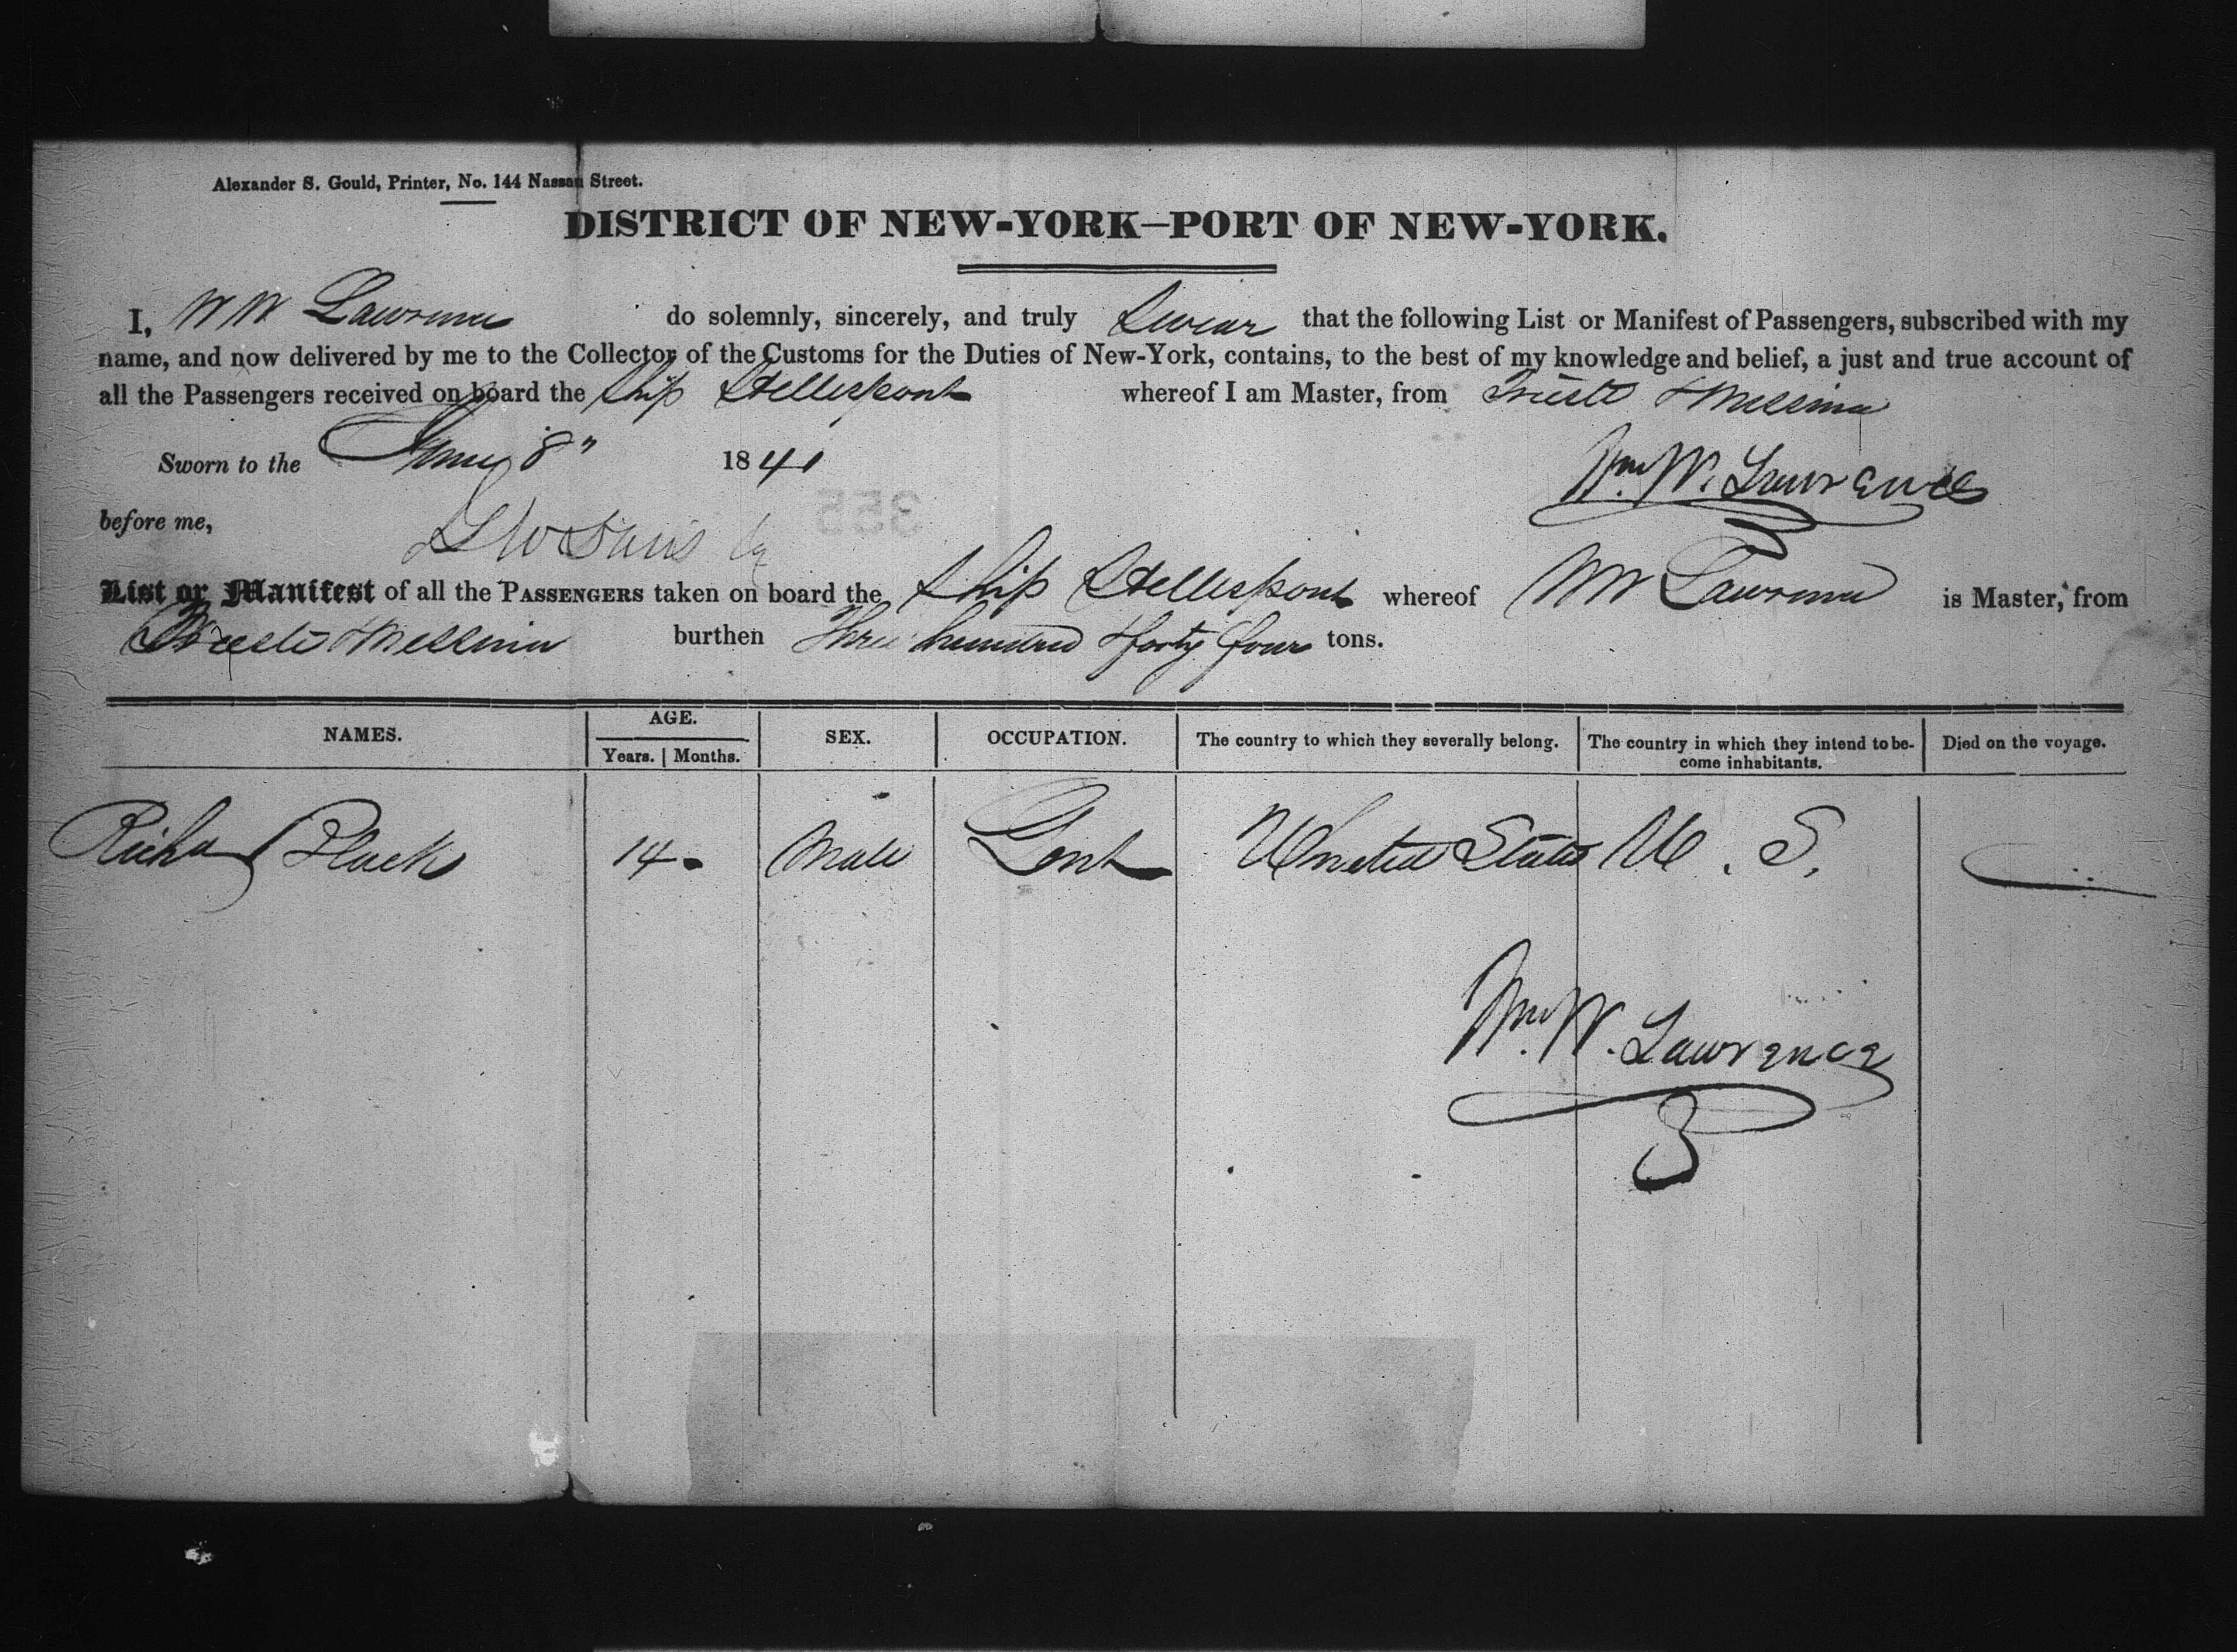 Alexander S. Gould, Printer, No. 144 Nassau Street.
DISTRICT OF NEW-YORK—PORT OF NEW-YORK.
I, W W Lawrence do solemnly, sincerely, and truly Swear that the following List or Manifest of Passengers, subscribed with my
name, and now delivered by me to the Collector of the Customs for the Duties of New-York, contains, to the best of my knowledge and belief, a just and true account of
all the Passengers received on board the Ship Hellespont whereof I am Master, from Trieste & Messina
Sworn to the 8" 1841 Wm W. Lawrence
before me,
355
List or Manifest of all the PASSENGERS taken on board the Ship Hellespont whereof W W Lawrence is Master, from
Trieste & Messina burthen Three hundred & forty four tons.
NAMES. AGE. SEX. OCCUPATION. The country to which they severally belong. The country in which they intend to be-
come inhabitants. Died on the voyage.
Years. Months.
Richard Black 14 Male Gent United States U. S.
Wm W. Lawrence